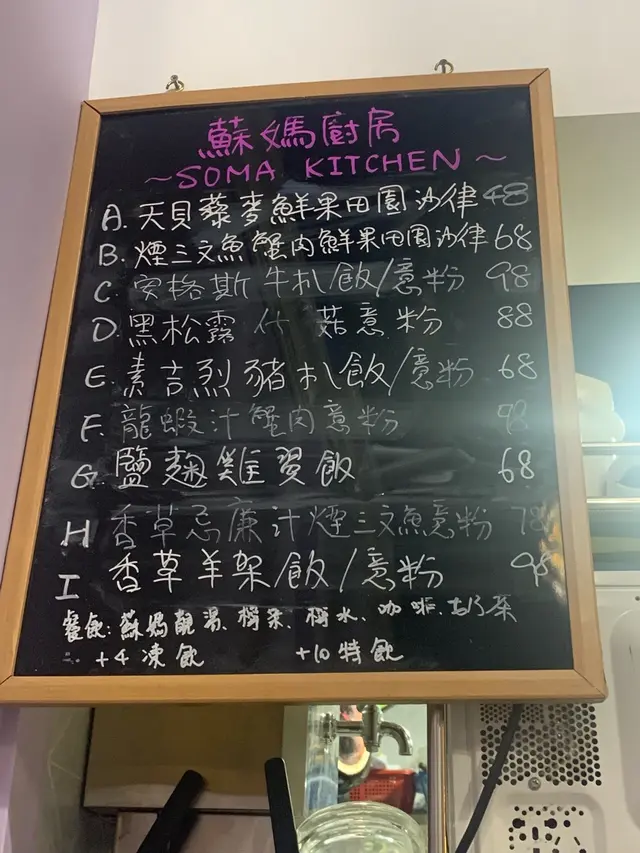 蘇媽廚房
~SOMA KITCHEN~
A. 天貝藜麥鮮果田園沙律 48
B. 煙三文魚蟹肉鮮果田園沙律 68
C. 安格斯牛扒飯/意粉 98
D. 黑松露什菇意粉 88
E. 素吉烈豬扒飯/意粉 68
F. 龍蝦汁蟹肉意粉 98
G. 鹽麹雞翼飯 68
H 香草忌廉汁煙三文魚意粉 78
I 香草羊架/飯/意粉 98
餐飲: 蘇媽靚湯、檸茶、檸水、咖啡、奶茶
+4 凍飲 +10 特飲